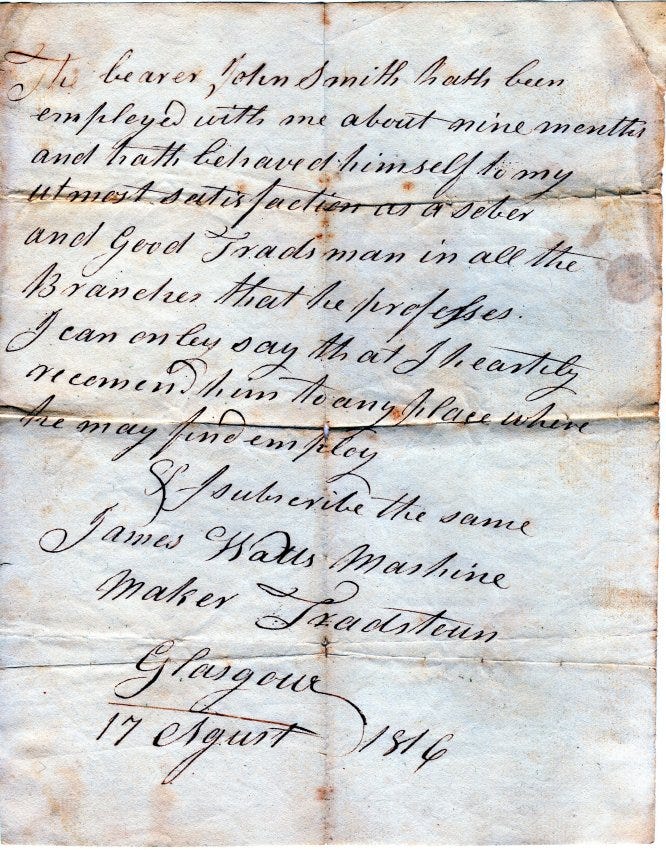 The bearer John Smith hath been
employed with me about nine months
and hath behaved himself to my
utmost satisfaction as a sober
and Good Tradsman in all the
Branches that he professes.
I can onley say that I heartily
recomend him to any place where
he may find employ
& I subscribe the same
James Watts Mashine
Maker Tradstoun
Glasgow
17 Agust 1816